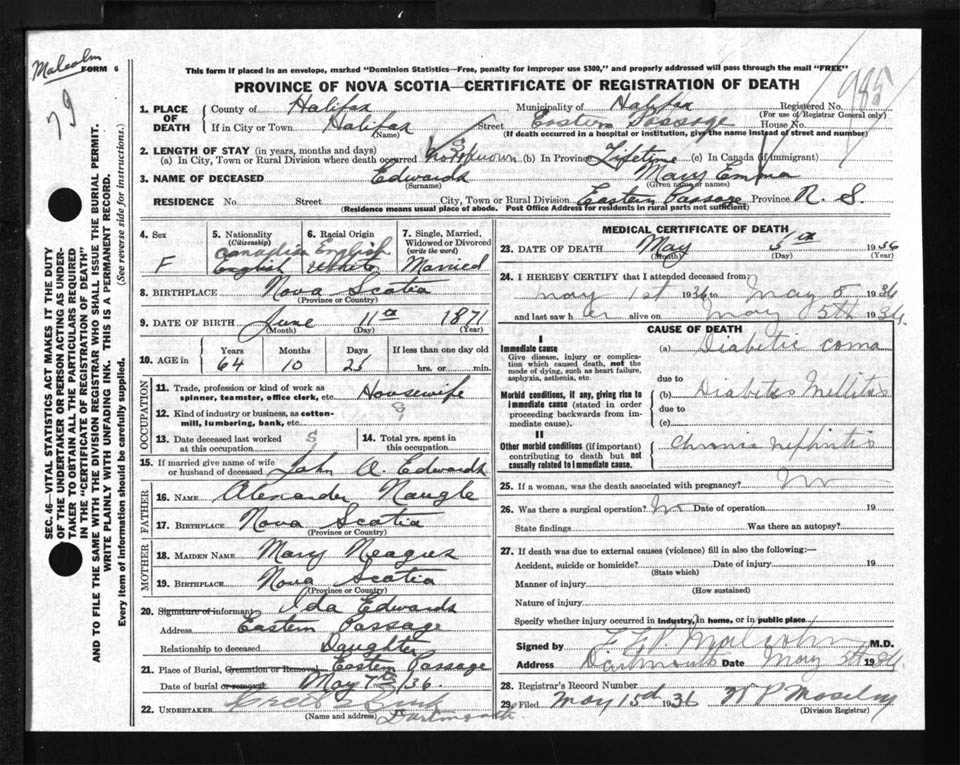 Malcolm
FORM 6
79
985
This form if placed in an envelope, marked "Dominion Statistics—Free, penalty for improper use $300," and properly addressed will pass through the mail "FREE"
PROVINCE OF NOVA SCOTIA—CERTIFICATE OF REGISTRATION OF DEATH
1. PLACE OF DEATH County of Halifax Municipality of Halifax Registered No.
(For use of Registrar General only)
If in City or Town Halifax Street Eastern Passage House No.
(Name) (If death occurred in a hospital or institution, give the name instead of street and number)
2. LENGTH OF STAY (in years, months and days)
(a) In City, Town or Rural Division where death occurred (b) In Province Lifetime (c) In Canada (if immigrant)
3. NAME OF DECEASED Edwards Mary Emma
(Surname) (Given name or names)
RESIDENCE No. Street City, Town or Rural Division Eastern Passage Province N. S.
(Residence means usual place of abode. Post Office Address for residents in rural parts not sufficient)
SEC. 46—VITAL STATISTICS ACT MAKES IT THE DUTY
OF THE UNDERTAKER OR PERSON ACTING AS UNDER-
TAKER TO OBTAIN ALL THE PARTICULARS REQUIRED
IN THE "CERTIFICATE OF REGISTRATION OF DEATH"
AND TO FILE THE SAME WITH THE DIVISION REGISTRAR WHO SHALL ISSUE THE BURIAL PERMIT.
WRITE PLAINLY WITH UNFADING INK. THIS IS A PERMANENT RECORD.
Every item of information should be carefully supplied. (See reverse side for instructions.)
4. Sex 5. Nationality (Citizenship) 6. Racial Origin 7. Single, Married, Widowed or Divorced (write the word)
F Canadian English English White Married
8. BIRTHPLACE Nova Scotia
(Province or Country)
9. DATE OF BIRTH June 11th 1871
(Month) (Day) (Year)
10. AGE in Years Months Days If less than one day
64 10 25 hrs. or min.
OCCUPATION
11. Trade, profession or kind of work as spinner, teamster, office clerk, etc. Housewife
12. Kind of industry or business, as cotton-mill, lumbering, bank, etc.
13. Date deceased last worked at this occupation 14. Total yrs. spent in this occupation
15. If married give name of wife or husband of deceased John A. Edwards
FATHER
16. NAME Alexander Naugle
17. BIRTHPLACE Nova Scotia
(Province or Country)
MOTHER
18. MAIDEN NAME Mary
19. BIRTHPLACE Nova Scotia
(Province or Country)
20. Signature of informant Ida Edwards
Address Eastern Passage
Relationship to deceased Daughter
21. Place of Burial, Cremation or Removal Eastern Passage
Date of burial or removal May 7th/36.
22. UNDERTAKER
(Name and address) Dartmouth
MEDICAL CERTIFICATE OF DEATH
23. DATE OF DEATH May 5th 1936
(Month) (Day) (Year)
24. I HEREBY CERTIFY that I attended deceased from
May 1st 1936 to May 5 1936
and last saw her alive on May 5th 1936.
CAUSE OF DEATH
I
Immediate cause (a) Diabetic coma
Give disease, injury or complication which caused death, not the mode of dying, such as heart failure, asphyxia, asthenia, etc.
due to
Morbid conditions, if any, giving rise to immediate cause (stated in order proceeding backwards from immediate cause).
(b) Diabetes Mellitus
due to
(c)
II
Other morbid conditions (if important) contributing to death but not causally related to immediate cause. Chronic nephritis
25. If a woman, was the death associated with pregnancy? No
26. Was there a surgical operation? No Date of operation 19
State findings Was there an autopsy?
27. If death was due to external causes (violence) fill in also the following:—
Accident, suicide or homicide? Date of injury 19
(State which)
Manner of injury
(How sustained)
Nature of injury
Specify whether injury occurred in industry, in home, or in public place
Signed by Malcolm M.D.
Address Dartmouth Date May 5th 1936.
28. Registrar's Record Number
29. Filed May 15 1936 W P Moseley
(Division Registrar)